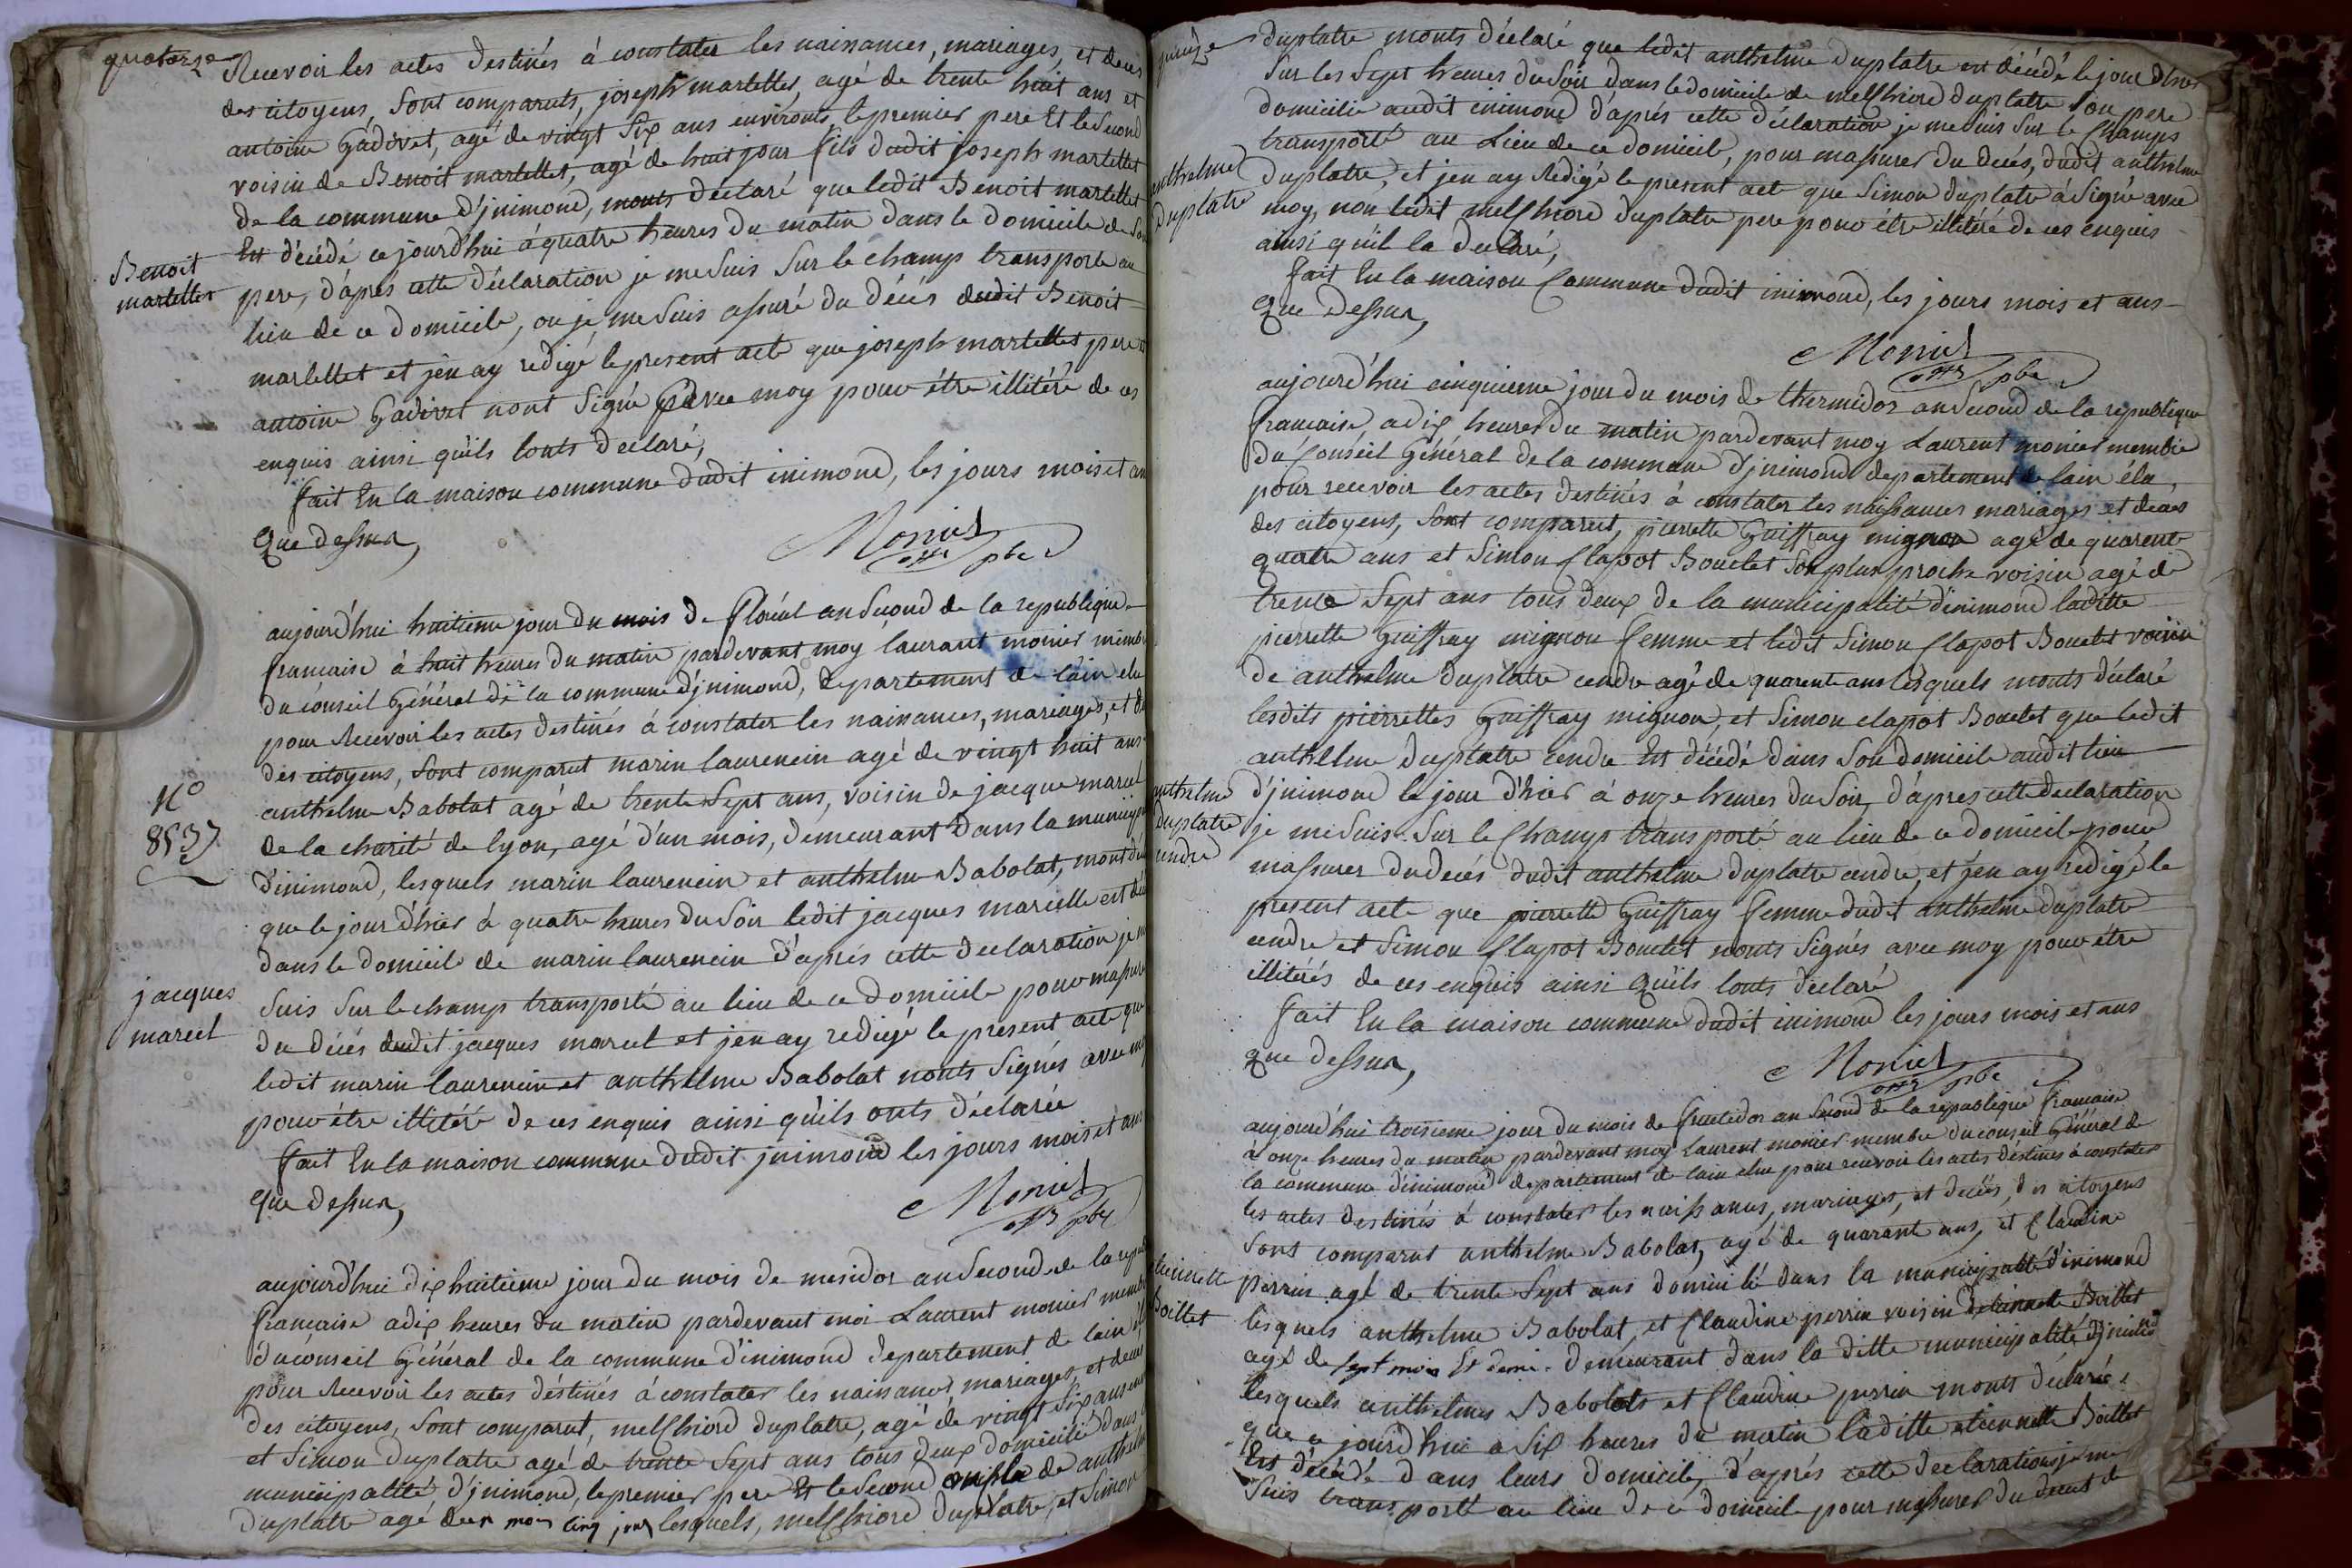 quatorze
Recevoir les actes destinés à constater les naissances, mariages, et deces
des citoyens, sont comparuts, joseph martellet, agé de trente huit ans et
antoine Gadivet, agé de vingt six ans environts, le premier pere Et le second
voisin de Benoit martellet, agé de huit jour fils dudit joseph martellet
de la commune d'jnimond, monts declaré que ledit Benoit martellet
Est décédé ce jourd'hui à quatre heures du matin dans le domicile de son
Benoit
martellet
pere, d'après cette déclaration je me suis sur le champ transporté au
lieu de ce domicile, ou je me suis assuré du décés dudit Benoit
martellet et jen ay redigé le present acte que joseph martellet pere et
antoine Gadivet nont signé avec moy pour être illitéré de ces
enquis ainsi qu'ils lonts declaré,
fait En la maison commune dudit inimond, les jours mois et an
Que dessus,
Monier
off pbe
aujourd'hui huitieme jour du mois de floréal an second de la republique
francaise à huit heures du matin pardevant moy laurant monier membre
du conseil Général de la commune d'jnimond, departement de lain elu
pour Recevoir les actes destinés à constater les naissances, mariages, et de
des citoyens, sont comparut marin laurencin agé de vingt huit ans
anthelme Babolat agé de trente sept ans, voisin de jacque marcel
N°
8537
de la charité de lyon, agé d'un mois, demeurant dans la municipa
d'inimond, lesquels marin laurencin et anthelme Babolat, mont dé
que le jour d'hier à quatre heures du soir ledit jacques marcelle est déc
dans le domicile de marin laurencin d'après cette declaration je m
jacques
marcel
suis sur le champ transporté au lieu de ce domicile pour massure
du décés dudit jacques marcel et jen ay redigé le present acte que
ledit marin laurencin et anthelme Babolat nonts signés avec mo
pour être illitéré de ces enquis ainsi qu'ils onts déclarée
fait En la maison commune dudit jnimond les jours mois et ans
Que dessus,
Monier
off pbe
aujourd'hui dix huitieme jour du mois de mesidor an second de la repu
francaise a dix heures du matin pardevant moi Laurent monier membre
du conseil Général de la commune d'inimond departement de lain
pour Recevoir les actes déstinés à constater les naisances mariages, et deces
des citoyens, sont comparut, melchiord duplatre, agé de vingt six ans en
et Simon duplatre agé de trente sept ans tous deux domicilié dans
municipalité d'jnimond, le premier pere Et le second oncle de anthelm
duplatre agé deux mois cinq jours lesquels, melchiord duplatre, et Simon
quinze
duplatre monts déclaré que ledit anthelme duplatre est décédé le jour d'hier
sur les sept heures du soir dans le domicile de melchiord duplatre son pere
domicilié audit inimond d'après cette déclaration je me suis sur le champs
transporté au Lieu de ce domicile, pour massurer du decés, dudit anthelme
anthelme
duplatre
duplatre, et jen ay Redigé le present acte que Simon duplatre à signé avec
moy, non ledit melchiord duplatre pere pour être illitéré de ces enquis
ainsi qu'il la declaré,
fait En la maison Commune dudit inimond, les jours mois et ans
Que dessus,
Monier
off pbe
aujourd'hui cinquieme jour du mois de thermidor an second de la republique
francaise a dix heures du matin pardevant moy Laurent monier membre
du Conseil Général de la commune d'jnimond departement de lain élu,
pour recevoir les actes destinés à constater les naissances mariages et deces
des citoyens, sont comparut, pierrette Guiffray mignon agé de quarente
quatre ans et Simon Clapot Bouclet son plus proche voisin agé de
trente sept ans tous deux de la municipalité d'inimond laditte
pierrette Guiffray mignon femme et ledit Simon Clapot Bouclet voisin
de anthelme duplatre cendre agé de quarente ans lesquels monts déclaré
lesdits pierrettes Guiffray mignon, et Simon clapot Bouclet que ledit
anthelme duplatre cendre Est décédé dans son domicile audit lieu
anthelme
duplatre
cendre
d'jnimond le jour d'hier à onze heures du soir, d'après cette declaration
je me suis sur le champ transporté au lieu de ce domicile pour
massurer du decés dudit anthelme duplatre cendre, et jen ay redigé le
present acte que pierrette Guiffray femme dudit anthelme duplatre
cendre et Simon Clapot Bouclet nonts signés avec moy pour être
illitérés de ces enquis ainsi qu'ils lonts declaré
fait En la maison commune dudit inimond les jours mois et ans
que dessus,
Monier
off pbe
aujourd'hui troisieme jour du mois de fructidor an second de la republique francaise
à onze heures du matin pardevant moy Laurent monier membre du conseil Général de
la commune d'inimond departement de lain elue pour recevoir les acts déstinés à constater
les actes destinés à constater les naissances, mariages, et decés, des citoyens
sont comparut anthelme Babolat, agé de quarant ans, et Claudine
etiennette
Boillet
perrin agé de trente sept ans domicilié dans la municipalité d'inimond
lesquels anthelme Babolat, et Claudine perrin voisin detiennette Boillet
agé de sept mois Et demi demeurant dans la ditte municipalité d'jnimond
lesquels anthelmes Babolats et Claudine perrin monts déclarée
que ce jourd'hui a six heures du matin laditte etiennette Boillet
Est décédé dans leurs domicile, d'après cette declaration je me
suis transporté au lieu de ce domicile pour massurer du decest de